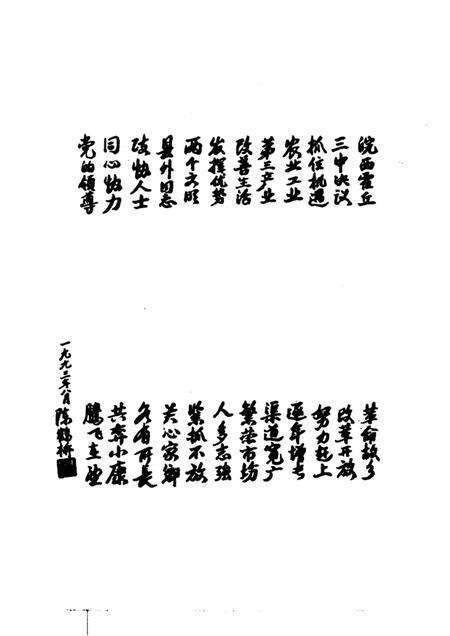 皖西霍丘 革命故乡
三中决议 改革开放
抓住机遇 努力赶上
农业工业 逐年增长
第三产业 渠道宽广
改善生活 繁荣市场
发挥优势 人多志强
两个文明 紧抓不放
县外同志 关心家乡
政协人士 各有所长
同心协力 共奔小康
党的领导 腾飞在望
一九九三年八月 陈鹤桥